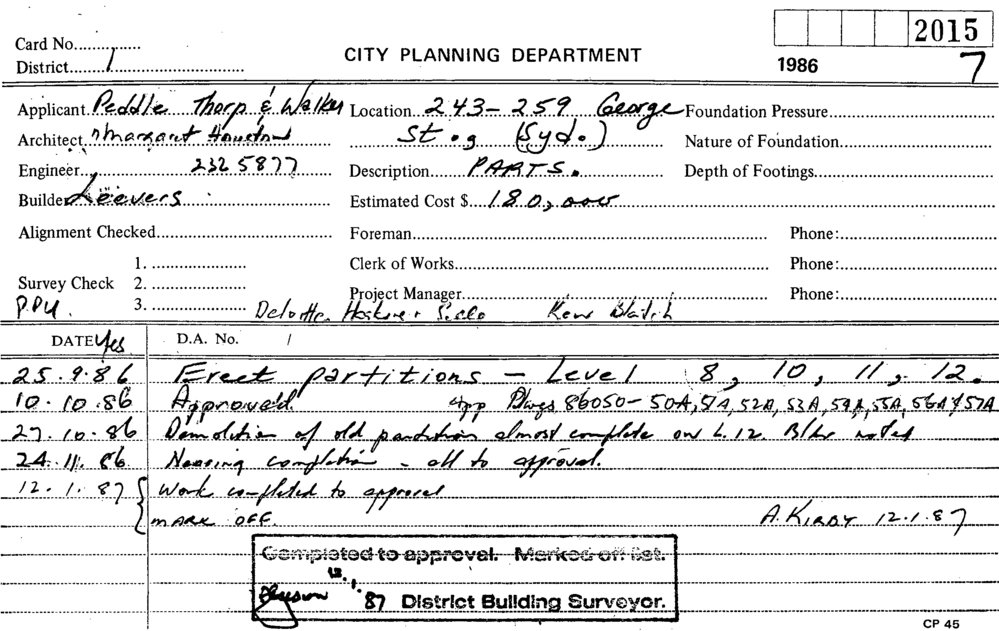 2015
Card No.
CITY PLANNING DEPARTMENT
District 1
1986 7
Applicant Peddle Thorp & Walker Location 243-259 George Foundation Pressure
Architect Margaret St., (Syd.) Nature of Foundation
Engineer 232 5877 Description PARTS. Depth of Footings
Builder Leevers Estimated Cost $ 180,000
Alignment Checked Foreman Phone:
1. Clerk of Works Phone:
Survey Check 2.
Project Manager Phone:
P.P.U. 3. Deloitte Haskins & Sells Ken
DATE Yes D.A. No. /
25.9.86 Erect partitions - Level 8, 10, 11, 12.
10.10.86 Approved. App Dwgs 86050-50A, 51A, 52A, 53A, 54A, 55A, 56A & 57A
27.10.86 Demolition of old partition almost complete on L.12. Bldr noted
24.11.86 Nearing completion - all to approval.
12.1.87 Work completed to approval
MARK OFF. A. KIRBY 12.1.87
Completed to approval. Marked off list.
12.1.
87 District Building Surveyor.
CP 45